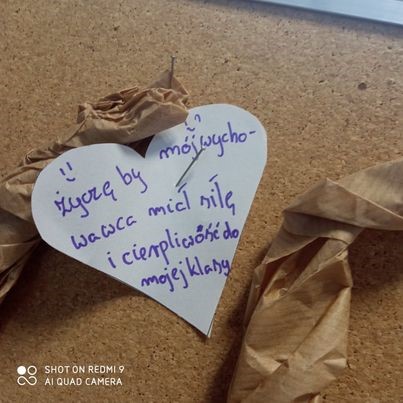 życzę by mój wycho-
wawca miał siłę
i cierpliwość do
mojej klasy
SHOT ON REDMI 9
AI QUAD CAMERA